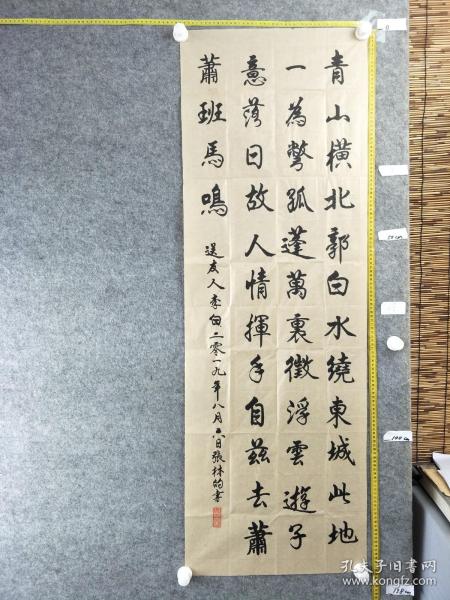 青山橫北郭白水繞東城此地
一為彆孤蓬萬裏徵浮雲遊子
意落日故人情揮手自茲去蕭
蕭班馬鳴
送友人李白二零一九年八月六日張林的書
100cm
孔夫子旧书网
www.kongfz.com